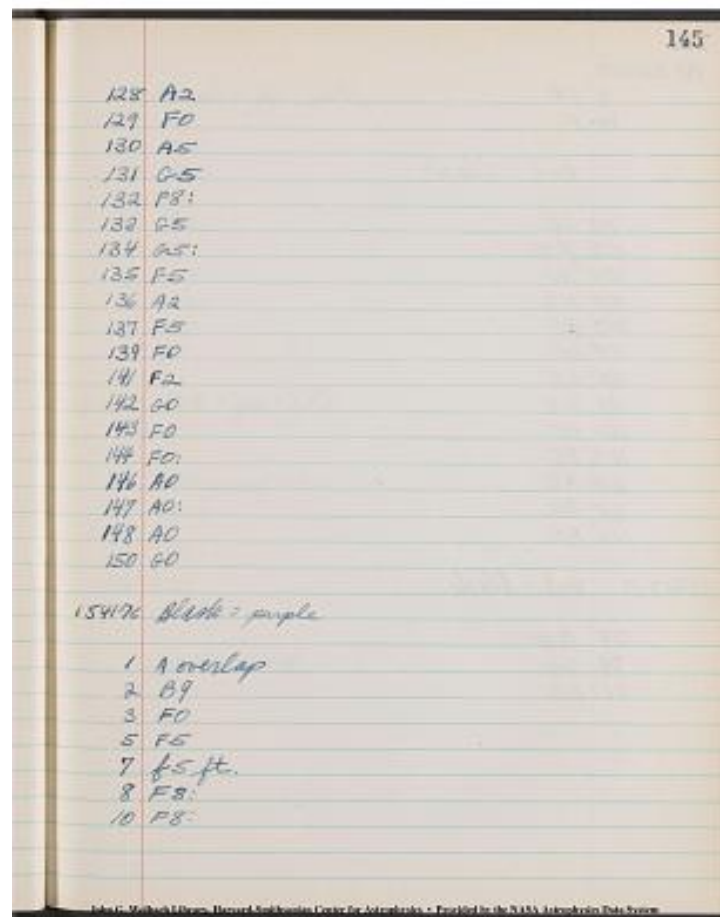 145
128 A2
129 F0
130 A5
131 G5
132 F8:
133 G5
134 G5:
135 F5
136 A2
137 F5
139 F0
141 F2
142 G0
143 F0
144 F0:
146 A0
147 A0:
148 A0
150 G0
= purple
1 A overlap
2 B9
3 F0
5 F5
7 f5 ft.
8 F8:
10 F8:
John G. Wolbach Library, Harvard-Smithsonian Center for Astrophysics • Provided by the NASA Astrophysics Data System